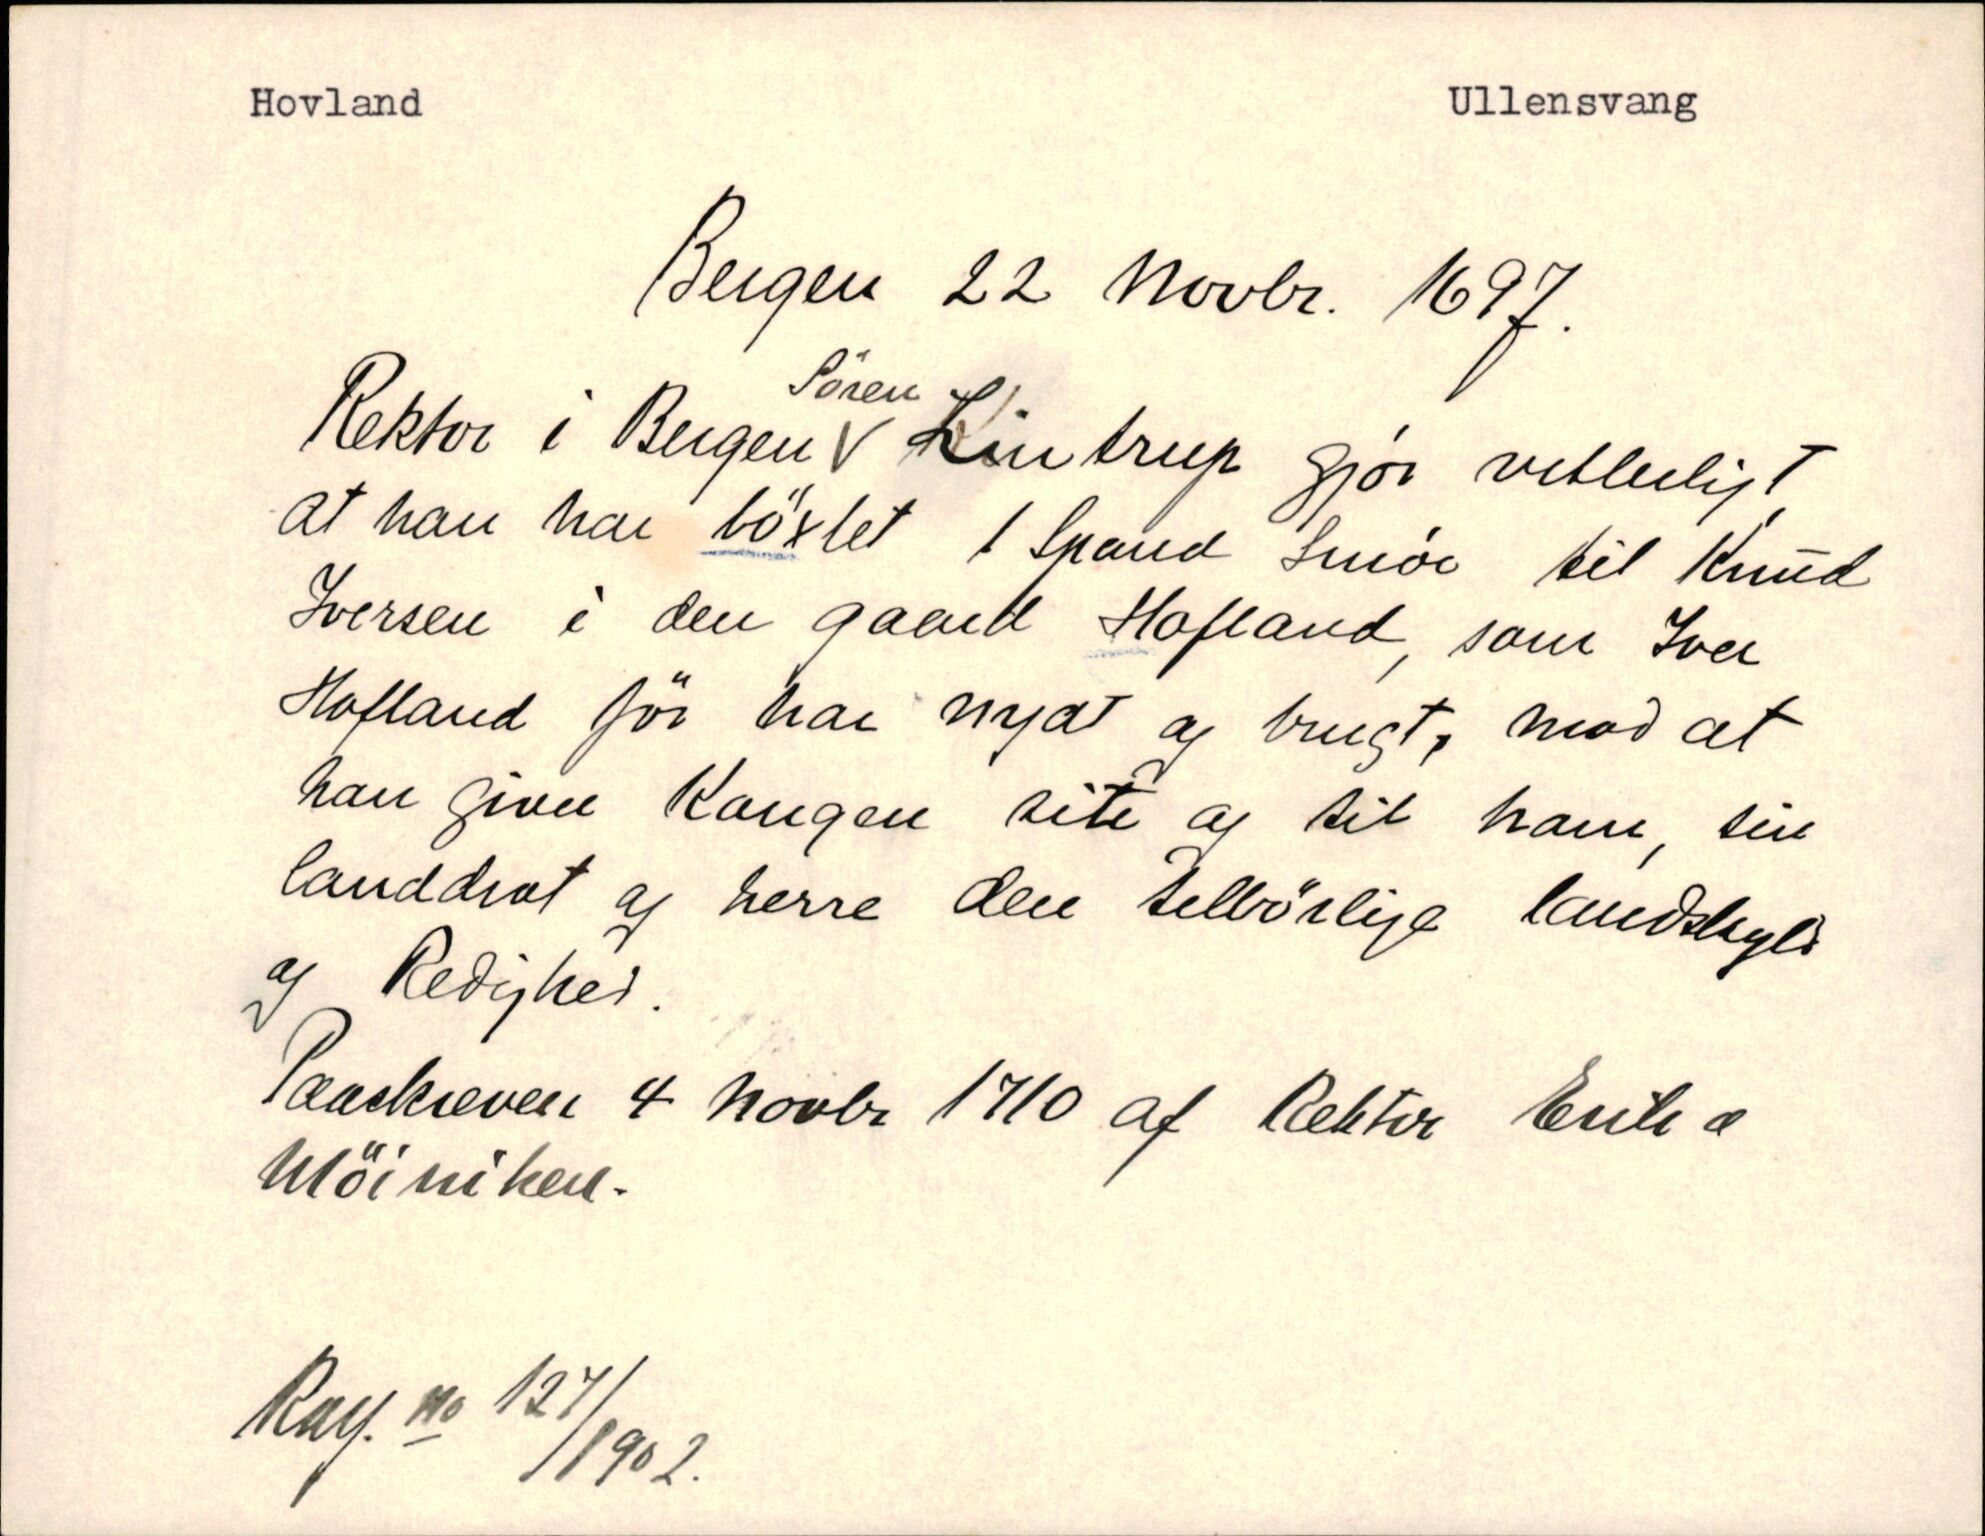 Hovland Ullensvang
Bergen 22 Novbr. 1697.
Rektor i Bergen Sören Lintrup gjör vitterligt
at han har böxlet 1 Spand Smör til Knud
Iversen i den gaard Hofland, som Iver
Hofland för har nydt og brugt, mod at
han giver Kongen sit og til ham, sin
landdrot og herre den tilbörlige landskyld
og Redighed.
Paaskreven 4 Novbr 1710 af Rektor Erik a
Möiniken.
No 127/1902.